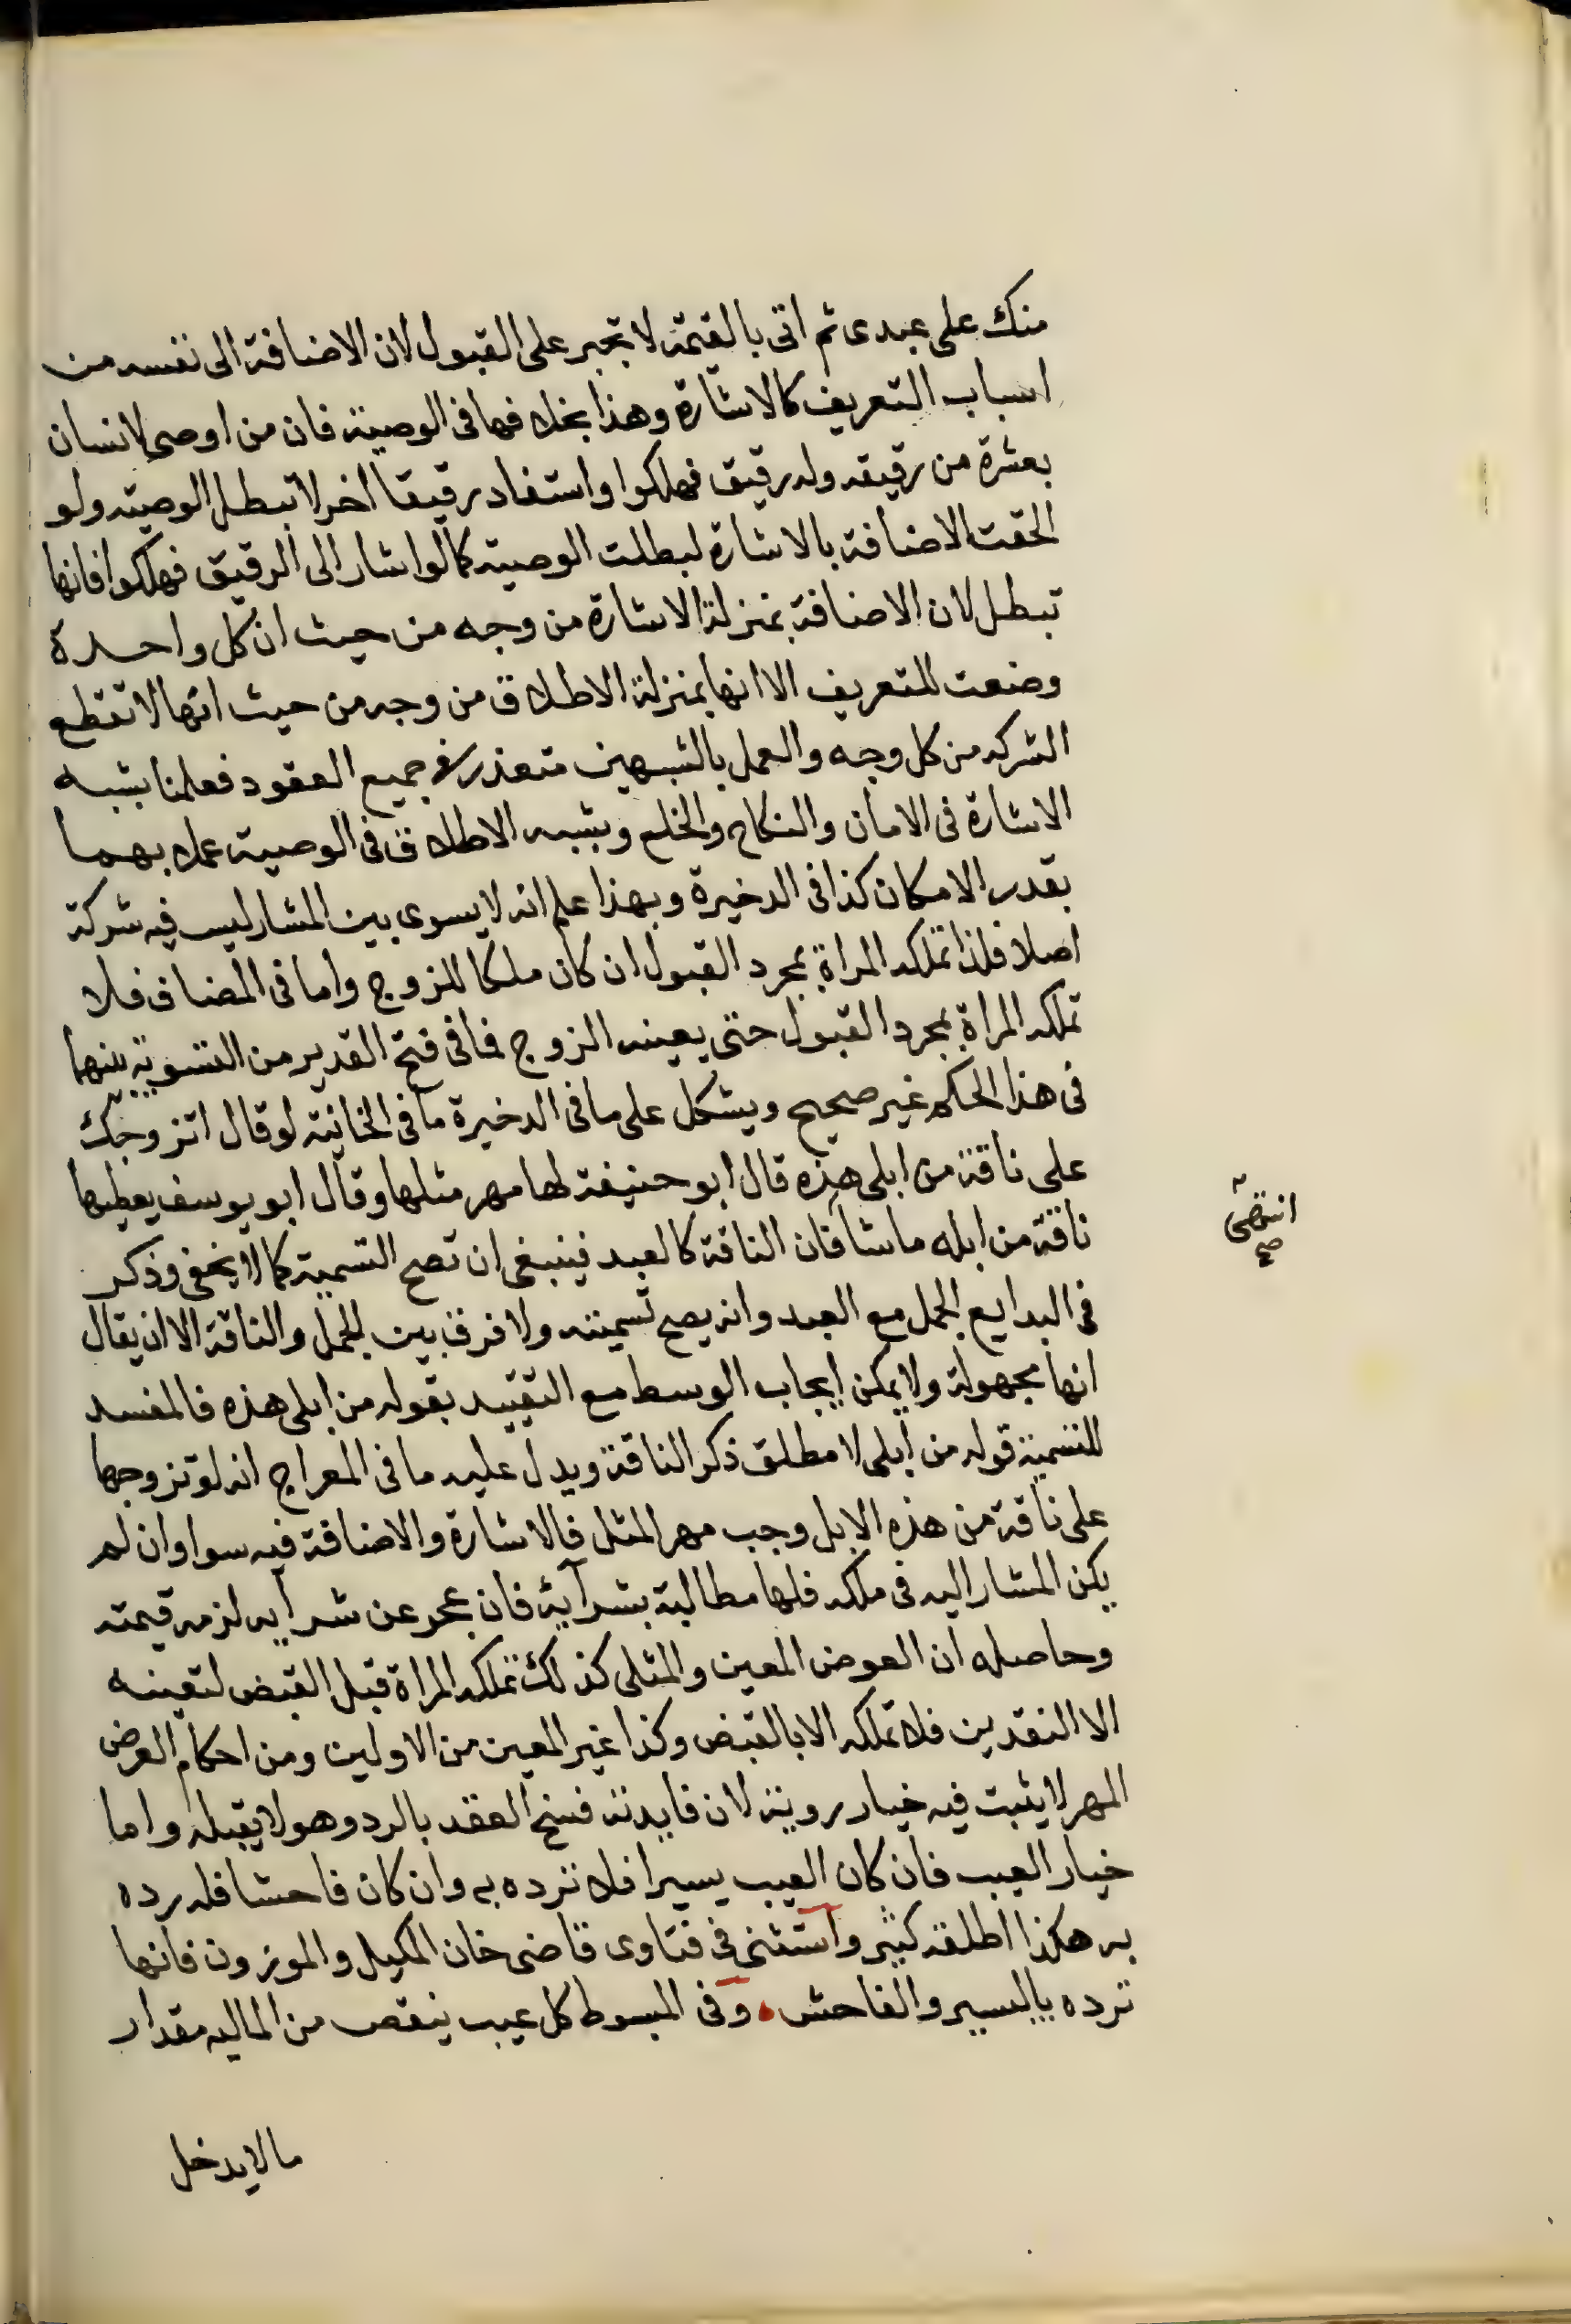 منك على عبدى ثم اتى بالقيمة لا تجبر على القبول لان الاضافة الى نفسه من
اسباب التعريف كالاشارة وهذا بخلافها فى الوصية فان من اوصى لانسان
بعشرة من رقيقه وله رقيق فهلكوا واستفاد رقيقا اخر لا تبطل الوصية ولو
الحقت الاضافة بالاشارة لبطلت الوصية كما لو اشار الى الرقيق فهلكوا فانها
تبطل لان الاضافة بمنزلة الاشارة من وجه من حيث ان كل واحدة
وضعت للتعريف الا انها بمنزلة الاطلاق من وجه من حيث انها لا تقطع
الشركه من كل وجه والعمل بالشبهين متعذر فى جميع العقود فعلمنا بشبه
الاشارة فى الامان والنكاح والخلع وبشبه الاطلاق فى الوصية عملا بهما
بقدر الامكان كذا فى الدخيرة وبهذا علم انه لا يسوى بين المشار ليس فيه شركة
اصلا فلذا تملكه المراة بمجرد القبول ان كان ملكا للزوج واما فى المضاف فلا
تملكه المراة بمجرد القبول حتى يعينه الزوج فما فى فتح القدير من التسوية بينهما
فى هذا الحكم غير صحيح ويشكل على ما فى الدخيرة ما فى الخانية لو قال اتزوجك
على ناقة من ابلى هذه قال ابو حنيفة لها مهر مثلها وقال ابو يوسف يعطيها
ناقة من ابله ما شا فان الناقة كالعبد فينبغى ان تصح التسمية كما لا يخفى وذكر
انتهى
صح
فى البدايع الجمل مع العبد وانه يصح تسميته ولا فرق بين الجمل والناقة الا ان يقال
انها مجهولة ولا يمكن ايجاب الوسط مع التقييد بقوله من ابلى هذه فالمفسد
للتسمية قوله من ابلى لا مطلق ذكر الناقة ويدل عليه ما فى المعراج انه لو تزوجها
على ناقة من هذه الابل وجب مهر المثل فالاشارة والاضافة فيه سوا وان لم
يكن المشار اليه فى ملكه فلها مطالبة بشرآية فان عجز عن شرآيه لزمه قيمته
وحاصله ان العوض المعين والمثلى كذلك تملكه المراة قبل القبض لتعينه
الا النقدين فلا تملكه الا بالقبض وكذا غير المعين من الاولين ومن احكام العرض
المهر لا يثبت فيه خيار روية لان فايدته فسخ العقد بالرد وهو لا يقبله واما
خيار العيب فان كان العيب يسيرا فلا ترده به وان كان فاحشا فله رده
به هكذا اطلقه كثير واستثنى فى فتاوى قاضى خان المكيل والموزون فانها
ترده باليسير والفاحش وفى المبسوط كل عيب ينقص من الماليه مقدار
ما لا يدخل